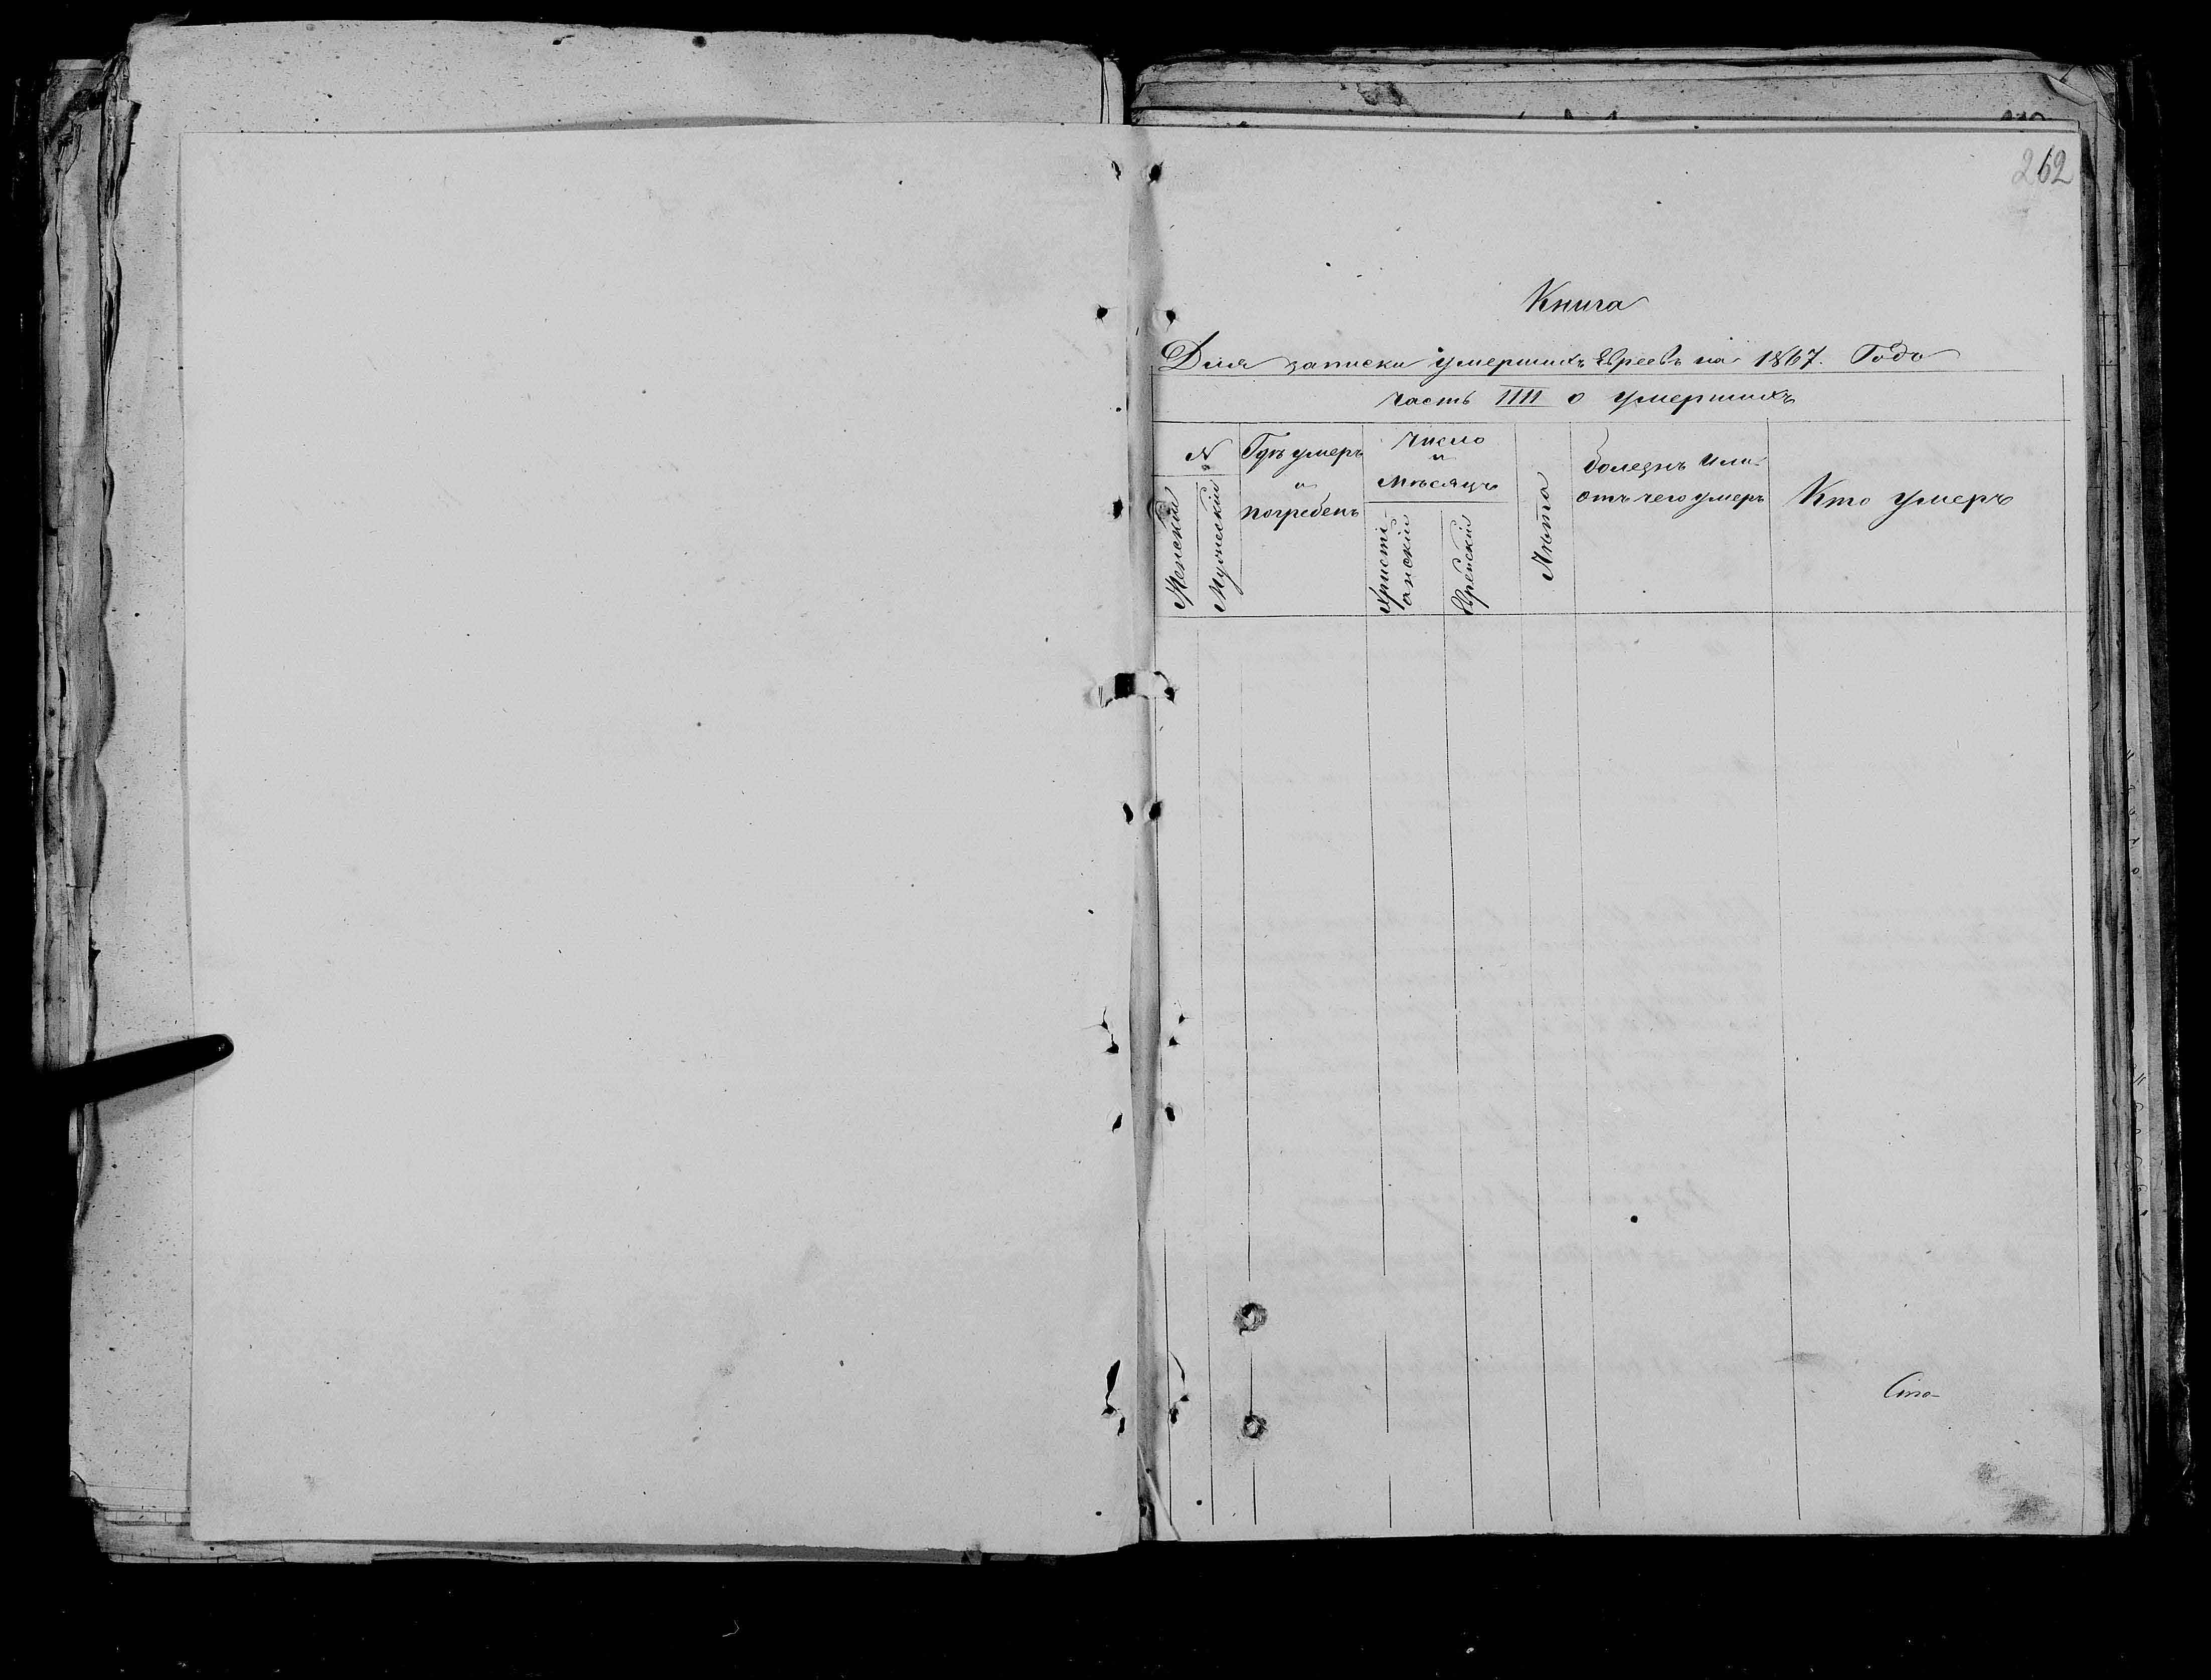 262
Книга
Для записки умершихъ Евреевъ на 1867. Годъ
Часть IIII о умершихъ
№
Женскій
Мужескій
Гдѣ умеръ
и
погребенъ
Число
и
Мѣсяцъ
Христі-
анскій
Еврейскій
Лѣта
Болезнь или
отъ чего умеръ
Кто умеръ